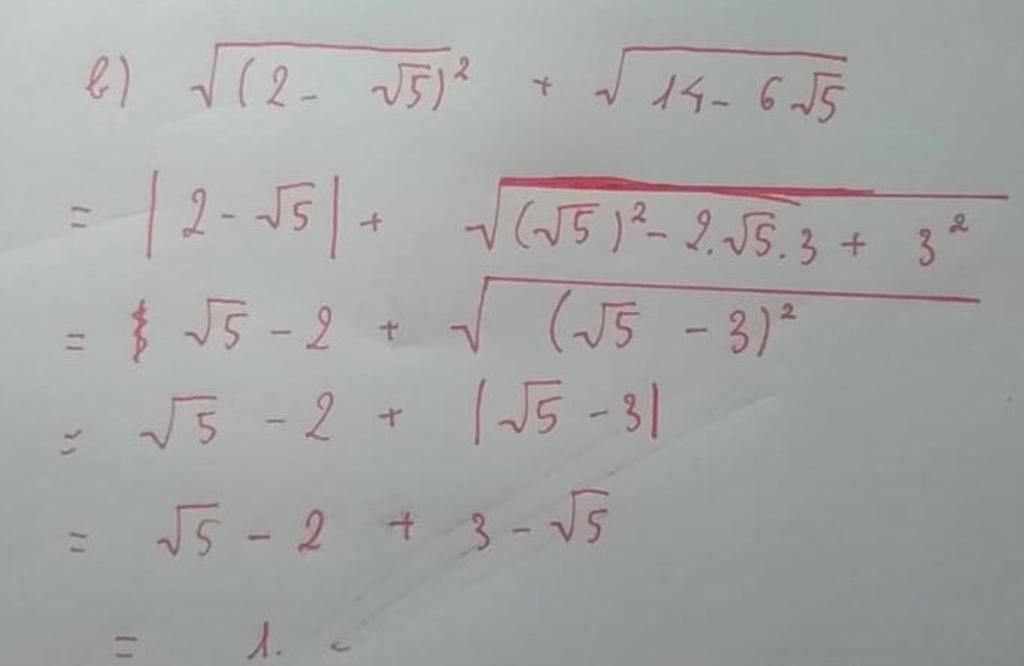 b) √(2 - √5)² + √14 - 6√5
= |2 - √5| + √(√5)² - 2.√5.3 + 3²
= √5 - 2 + √(√5 - 3)²
= √5 - 2 + |√5 - 3|
= √5 - 2 + 3 - √5
= 1.